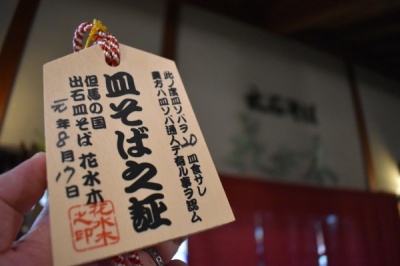 此ノ度皿ソバヲ 20 皿食サレ
貴方ハ皿ソバ通人デ有ル事ヲ認ム
皿そば之証
但馬の国
出石皿そば 花水木
元年8月17日
花水木
之印